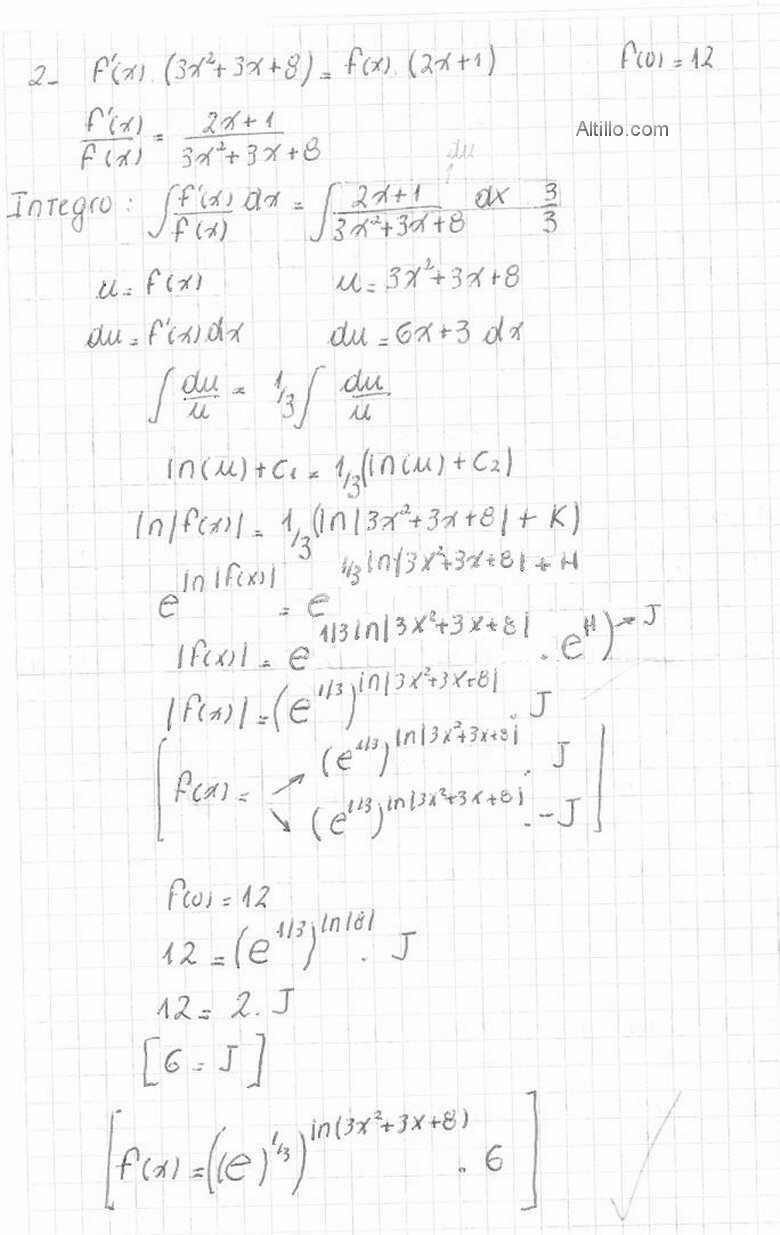 2- f'(x) . (3x²+3x+8) = f(x) . (2x+1) f(0) = 12
f'(x)/f(x) = (2x+1)/(3x²+3x+8)
Altillo.com
du
Integro : ∫ f'(x)/f(x) dx = ∫ (2x+1)/(3x²+3x+8) dx 3/3
u = f(x) u = 3x²+3x+8
du = f'(x) dx du = 6x+3 dx
∫ du/u = 1/3 ∫ du/u
ln(u) + C₁ = 1/3 (ln(u) + C₂)
ln|f(x)| = 1/3 (ln|3x²+3x+8| + K)
e^(ln|f(x)|) = e^(1/3 ln|3x²+3x+8| + H)
|f(x)| = e^(1/3 ln|3x²+3x+8|) . e^H) → J
|f(x)| = (e^(1/3))^(ln|3x²+3x+8|) . J
[f(x) = ↗ (e^(1/3))^(ln|3x²+3x+8|) . J
↘ (e^(1/3))^(ln|3x²+3x+8|) . -J]
f(0) = 12
12 = (e^(1/3))^(ln|8|) . J
12 = 2 . J
[6 = J]
[f(x) = ((e)^(1/3))^(ln(3x²+3x+8)) . 6]